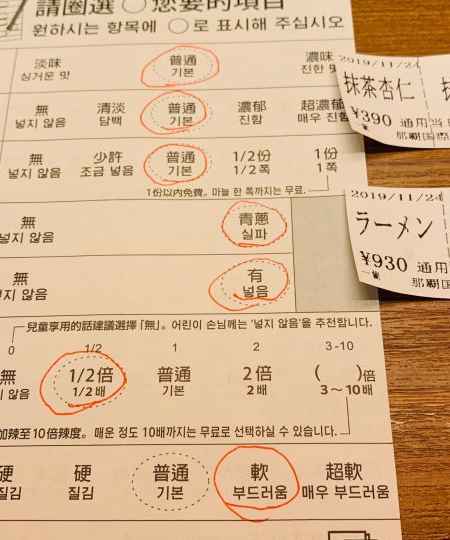 請圈選 ◯ 您要的項目
원하시는 항목에 ◯로 표시해 주십시오
淡味 普通 濃味
싱거운 맛 기본 진한 맛
無 清淡 普通 濃郁 超濃郁
넣지 않음 담백 기본 진함 매우 진함
無 少許 普通 1/2份 1份
넣지 않음 조금 넣음 기본 1/2쪽 1쪽
1份以內免費。마늘 한 쪽까지는 무료.
無 青蔥
넣지 않음 실파
無 有
넣지 않음 넣음
兒童享用的話建議選擇「無」。어린이 손님께는 '넣지 않음'을 추천합니다.
0 1/2 1 2 3-10
無 1/2倍 普通 2倍 ( )倍
않음 1/2 배 기본 2 배 3～10배
加辣至10倍辣度。매운 정도 10배까지는 무료로 선택하실 수 있습니다.
硬 硬 普通 軟 超軟
질김 질김 기본 부드러움 매우 부드러움
2019/11/24
抹茶杏仁
¥390 通用当
一蘭 那覇国
2019/11/24
ラーメン
¥930 通用
一蘭 那覇国